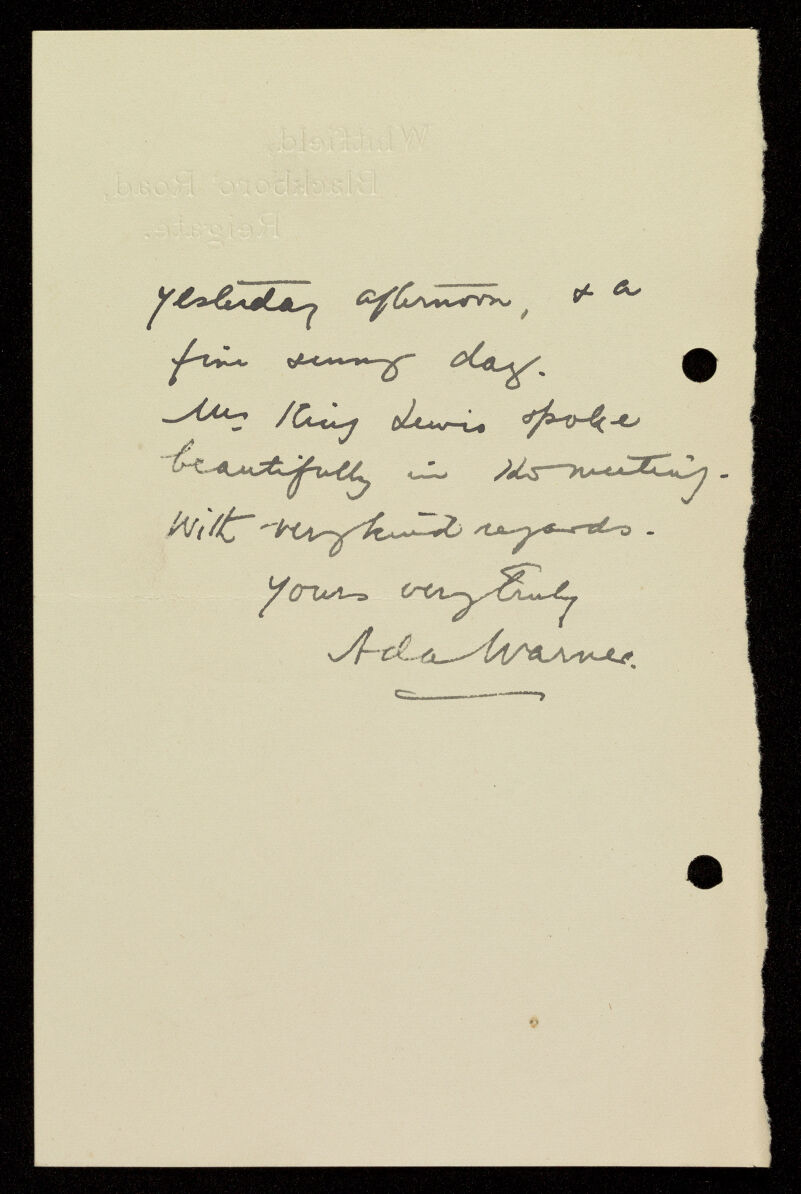 Whitfield,
Blackboro' Road,
Reigate.
yesterday afternoon, & a
fine sunny day.
Mrs King Lewis spoke
beautifully in the meeting.
With very kind regards.
Yours very truly
Ada Warner.